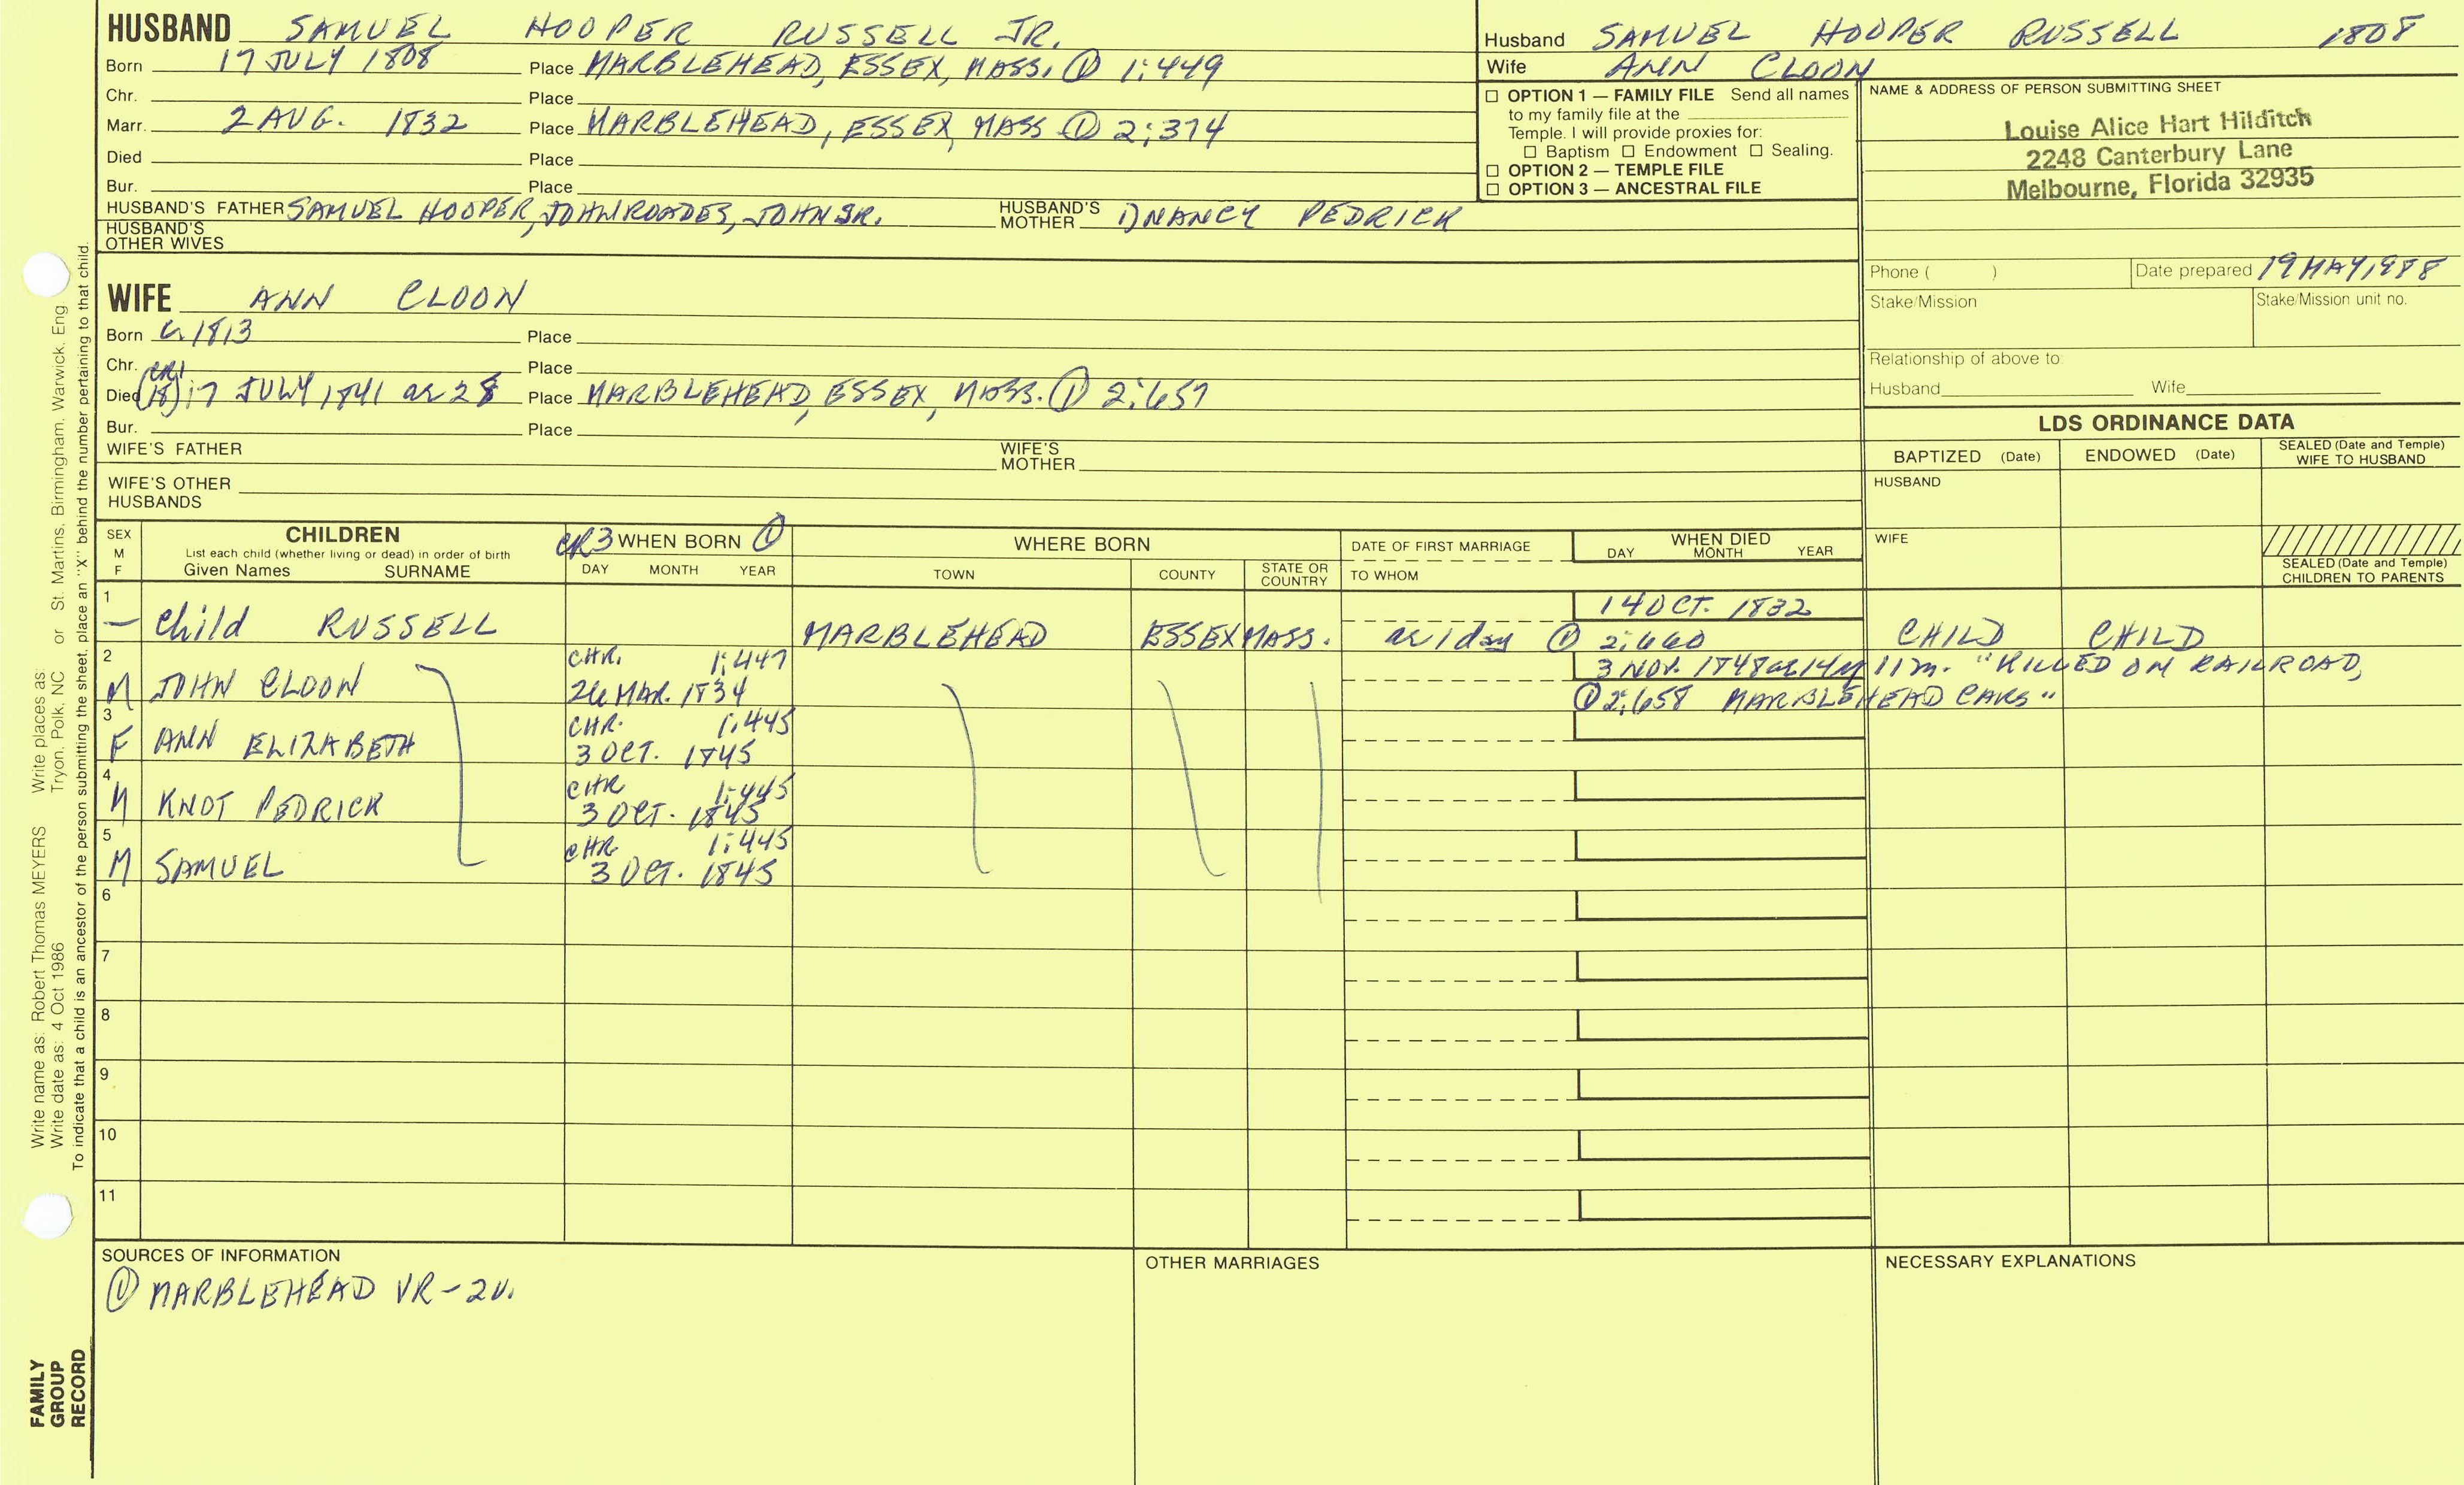 HUSBAND SAMUEL HOOPER RUSSELL JR.
Born 17 JULY 1808 Place MARBLEHEAD, ESSEX, MASS. ① 1:449
Chr. Place
Marr. 2 AUG. 1832 Place MARBLEHEAD, ESSEX, MASS ① 2:374
Died Place
Bur. Place
HUSBAND'S FATHER SAMUEL HOOPER, JOHN ROADES, JOHN SR. HUSBAND'S MOTHER 1) NANCY PEDRICK
HUSBAND'S OTHER WIVES
Husband SAMUEL HOOPER RUSSELL 1808
Wife ANN CLOON
☐ OPTION 1 — FAMILY FILE Send all names
to my family file at the
Temple. I will provide proxies for:
☐ Baptism ☐ Endowment ☐ Sealing.
☐ OPTION 2 — TEMPLE FILE
☐ OPTION 3 — ANCESTRAL FILE
NAME & ADDRESS OF PERSON SUBMITTING SHEET
Louise Alice Hart Hilditch
2248 Canterbury Lane
Melbourne, Florida 32935
Phone ( ) Date prepared 19 MAY 1988
Stake/Mission Stake/Mission unit no.
Relationship of above to:
Husband Wife
WIFE ANN CLOON
Born 1813 Place
Chr. Place
CR1
Died (18) 17 JULY 1841 ae 28 Place MARBLEHEAD, ESSEX, MASS. ① 2:657
Bur. Place
WIFE'S FATHER WIFE'S MOTHER
WIFE'S OTHER HUSBANDS
LDS ORDINANCE DATA
BAPTIZED (Date) ENDOWED (Date) SEALED (Date and Temple) WIFE TO HUSBAND
HUSBAND
WIFE
SEALED (Date and Temple) CHILDREN TO PARENTS
SEX M F
CHILDREN
List each child (whether living or dead) in order of birth
Given Names SURNAME
CR3 WHEN BORN ①
DAY MONTH YEAR
WHERE BORN
TOWN COUNTY STATE OR COUNTRY
DATE OF FIRST MARRIAGE
TO WHOM
WHEN DIED
DAY MONTH YEAR
1 14 OCT. 1832
— Child RUSSELL MARBLEHEAD ESSEX MASS. ae 1 day ① 2:660 CHILD CHILD
2 CHR. 1:447 3 NOV. 1848 ae 14y 11m. "KILLED ON RAILROAD,
M JOHN CLOON 26 MAR. 1834 ① 2:658 MARBLEHEAD CARS"
3 CHR. 1:445
F ANN ELIZABETH 3 OCT. 1845
4 CHR 1:445
M KNOT PEDRICK 3 OCT. 1845
5 CHR 1:445
M SAMUEL 3 OCT. 1845
6
7
8
9
10
11
SOURCES OF INFORMATION
① MARBLEHEAD VR-2V.
OTHER MARRIAGES
NECESSARY EXPLANATIONS
Write name as: Robert Thomas MEYERS Write places as: Tryon, Polk, NC or St. Martins, Birmingham, Warwick, Eng
Write date as: 4 Oct 1986
To indicate that a child is an ancestor of the person submitting the sheet, place an "X" behind the number pertaining to that child.
FAMILY
GROUP
RECORD